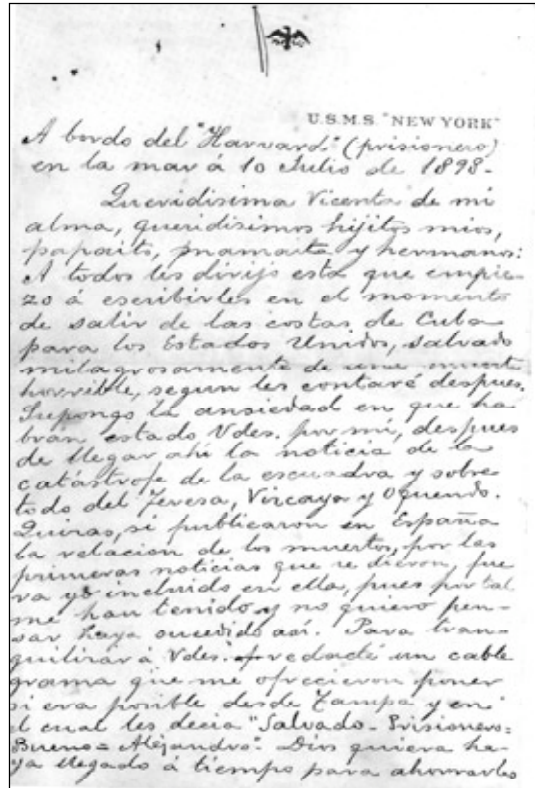 U.S.M.S. "NEW YORK"
A bordo del "Harvard" (prisionero)
en la mar á 10 Julio de 1898.-
Queridisima Vicenta de mi
alma, queridisimos hijitos mios,
papaito, mamaita y hermanos:
A todos les dirijo esta que empie-
zo á escribirles en el momento
de salir de las costas de Cuba
para los Estados Unidos, salvado
milagrosamente de una muerte
horrible, segun les contaré despues.
Supongo la ansiedad en que ha-
bran estado Vdes. por mí, despues
de llegar ahí la noticia de la
catástrofe de la escuadra y sobre
todo del Teresa, Vizcaya y Oquendo.
Quizas, si publicaron en España
la relacion de los muertos, por las
primeras noticias que se dieron, fue-
ra yo incluido en ella, pues por tal
me han tenido y no quiero pen-
sar haya sucedido así. Para tran-
quilizar á Vdes. redacté un cable
grama que me ofrecieron poner
si era posible desde Tampa y en
el cual les decia "Salvado-Prisionero=
Bueno=Alejandro". Dios quiera ha-
ya llegado á tiempo para ahorrarles